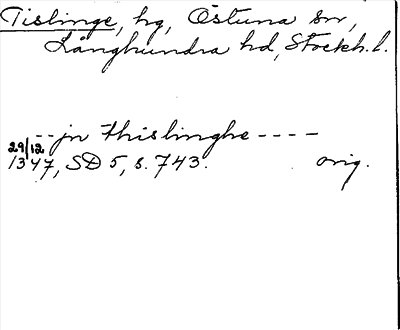 Tislinge, hg, Östuna sn,
Långhundra hd, Stockh. l.
-- jn thislinghe ----
29/12
1347, SD 5, s. 743. orig.